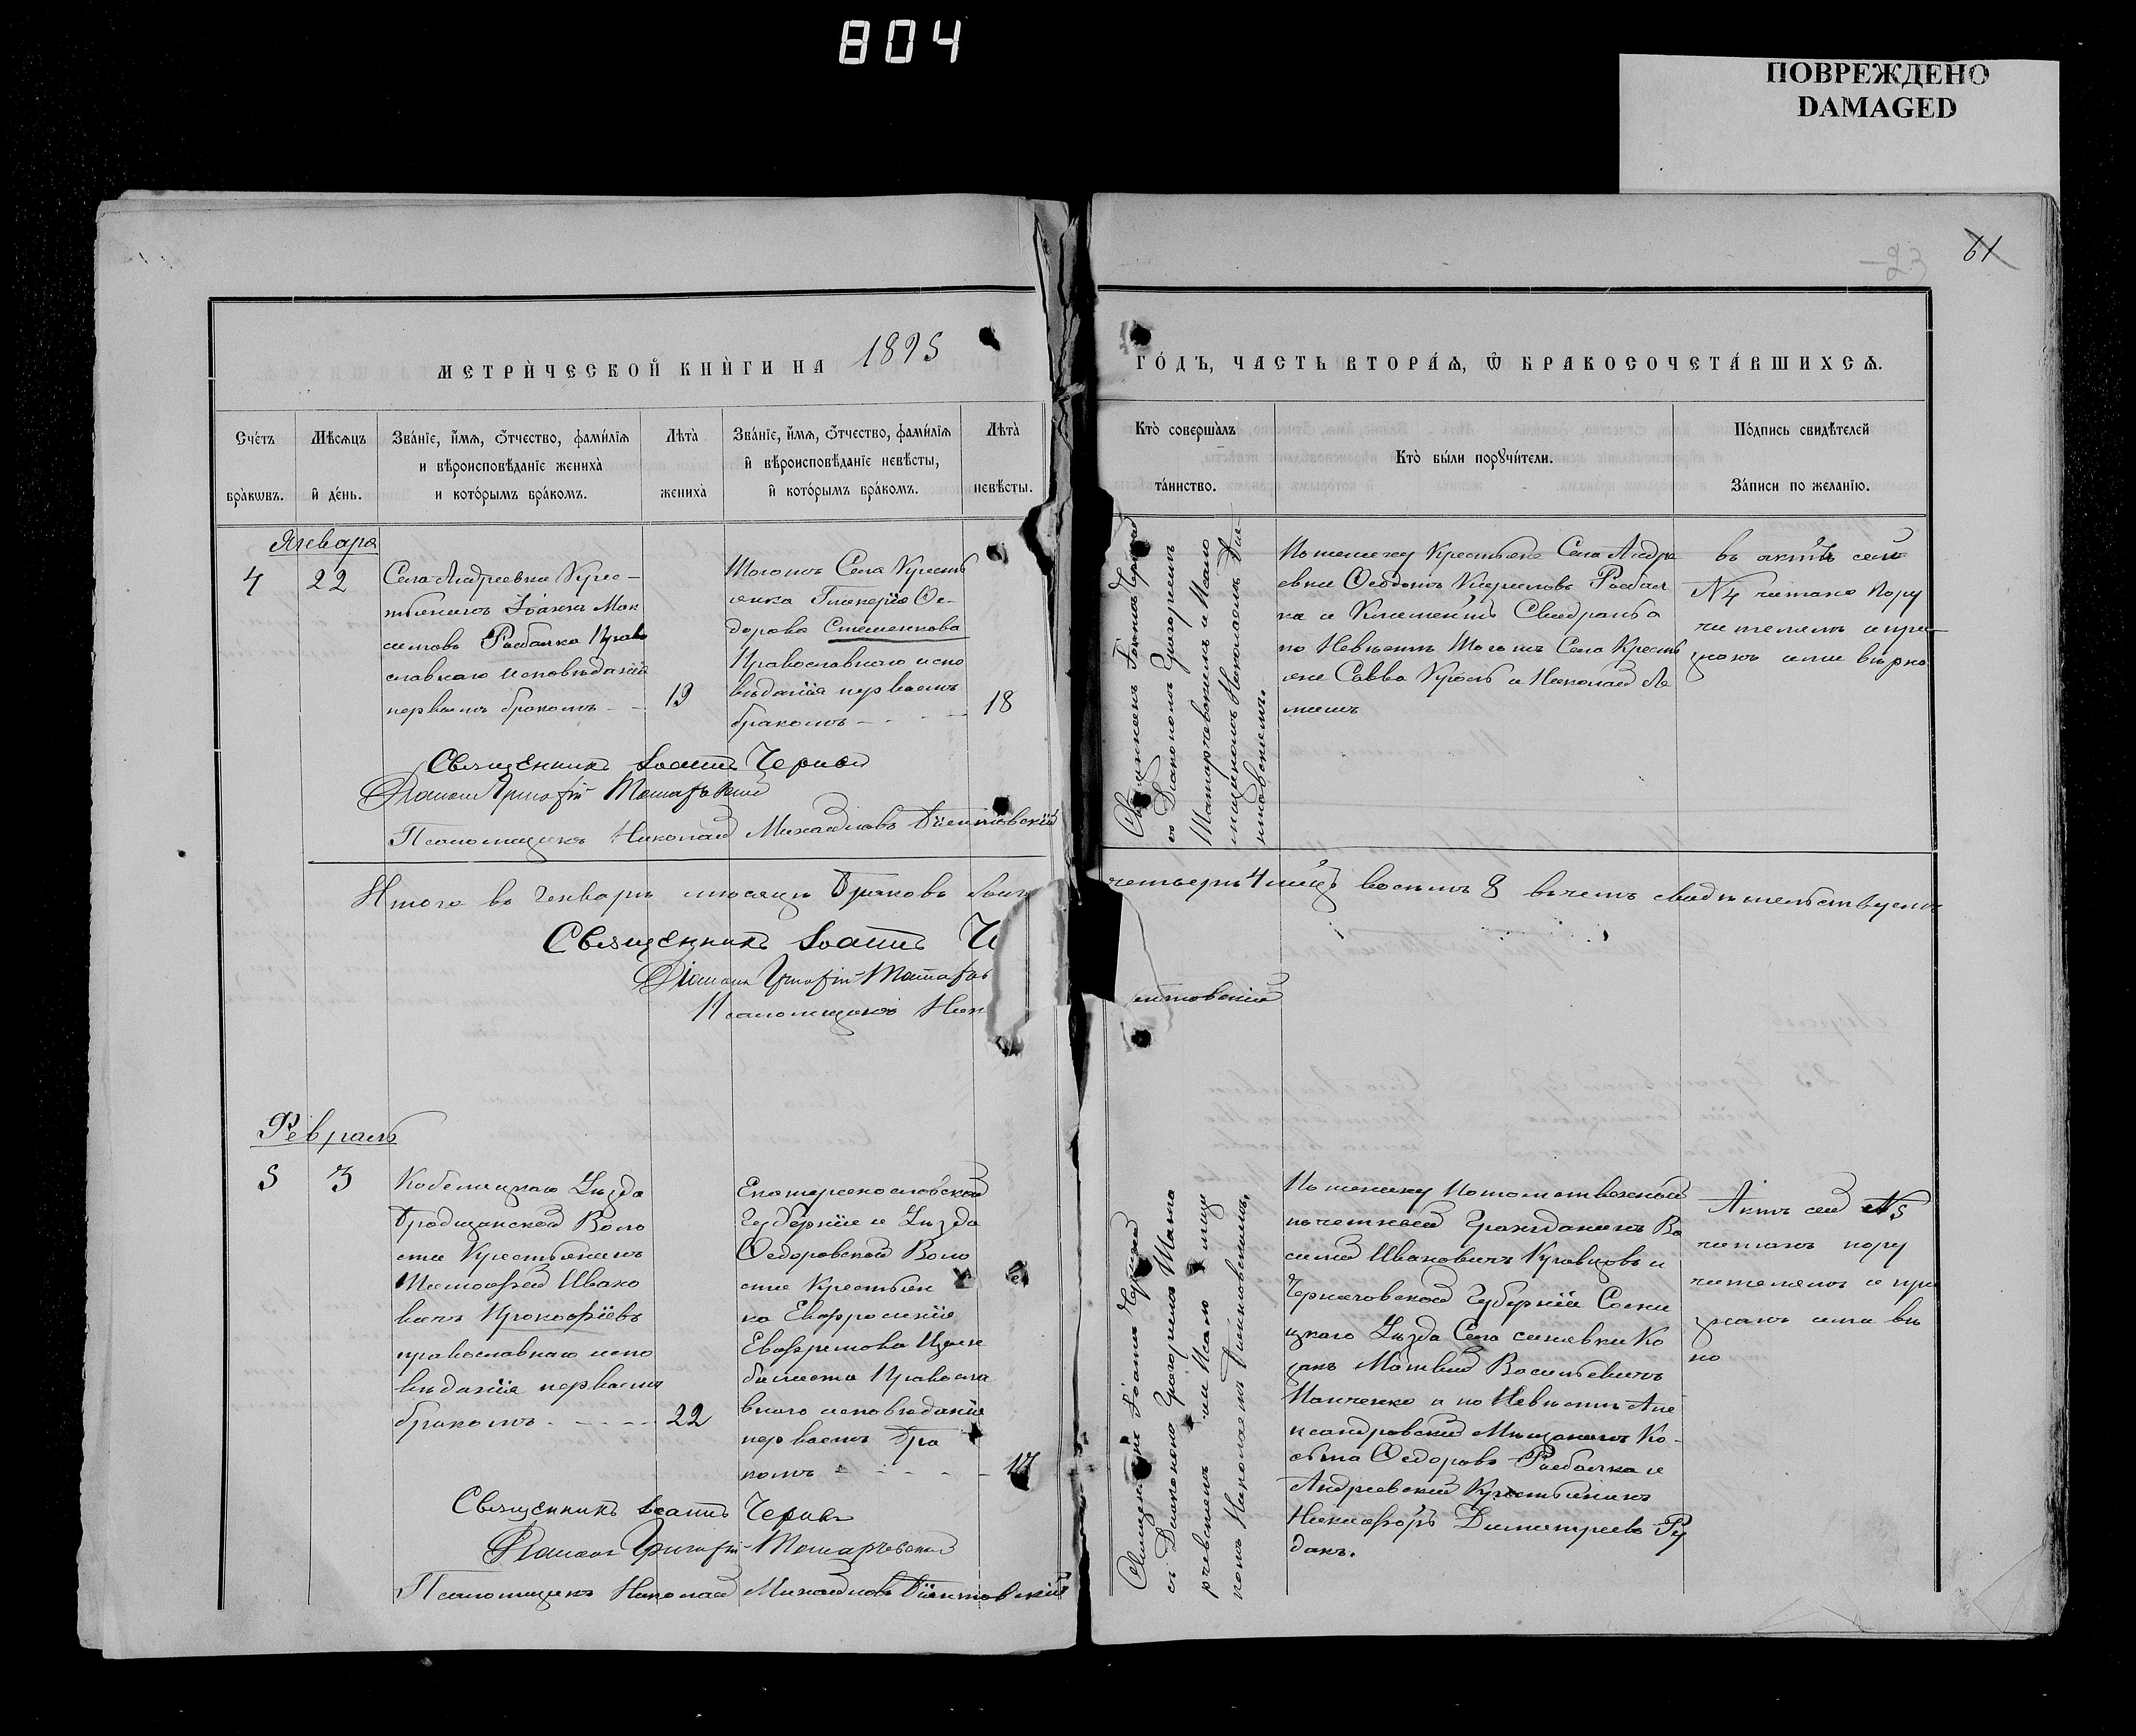 804
ПОВРЕЖДЕНО
DAMAGED
61
23
МЕТРИЧЕСКОЙ КНИГИ НА 1895
ГОДЪ, ЧАСТЬ ВТОРАѦ, Ѿ БРАКОСОЧЕТАВШИХСѦ.
Счетъ браковъ.
Мѣсѧцъ и день.
Званіе, имѧ, ѿчество, фамиліѧ и вѣроисповѣданіе жениха и которымъ бракомъ.
Лѣта жениха
Званіе, имѧ, ѿчество, фамиліѧ и вѣроисповѣданіе невѣсты, и которымъ бракомъ.
Лѣта невѣсты.
Кто совершалъ таинство.
Кто были порꙋчители.
Подпись свидѣтелей записи по желанію.
Января
4
22
Села Андреевки Крес-
тьянинъ Іоаннъ Мак
симовъ Рыбалка Право
славнаго исповѣданія
первымъ бракомъ - -
19
Тогожъ Села Кресть
янка Гликерія Ѳе-
дорова Стешенкова
Православнаго испо
вѣданія первымъ
бракомъ - - - -
18
Священникъ Іоаннъ Черный
съ Діакономъ Григоріемъ
Николаемъ
По жениху Крестьяне Села Андре
евки Ѳеодотъ Кириловъ Рыбал
ка и Климентъ
по Невѣстѣ Тогожъ Села Кресть
яне Савва Кроль и Николай Ле
въ актѣ сей
№ 4 читано пору
чителямъ и при
знанъ ими вѣрно
Священникъ Іоаннъ Черный
Діаконъ Григорій
Псаломщикъ Николай Михайловъ
Итого въ Генварѣ мѣсяцѣ браковъ
четыре 4 лицъ восемь 8 въ чемъ свидѣтельствуемъ
Священникъ Іоаннъ Ч
Діаконъ Григорій
Псаломщикъ Ник
Февраль
5
3
Кобелякскаго Уѣзда
Бродщанской Воло
сти Крестьянинъ
Тимофей Ивано
вичъ Прокофіевъ
православнаго испо
вѣданія первымъ
бракомъ - - - -
22
Екатеринославской
Губерніи и Уѣзда
Ѳедоровской Воло
сти Крестьян
ка Евфросинія
Евфремова
Правосла
внаго исповѣданія
первымъ бра
комъ - - - - -
17
Священникъ Іоаннъ Черный
съ Діакономъ Григоріемъ
Николаемъ
По жениху Потомственный
почетный Гражданинъ Ва
силій Ивановичъ Кравцовъ и
Черниговской Губерніи Сосни
цкаго Уѣзда Села Синявки Ко
закъ Матвій Васильевичъ
Панченко а по Невѣстѣ Але
ксандровскій Мѣщанинъ Ко-
сьма Ѳедоровъ Рыбалка и
Андреевскій Крестьянинъ
Никифоръ Димитріевъ Ру
данъ.
Актъ сей № 5
читанъ пору
чителямъ и при
знанъ ими вѣ
но
Священникъ Іоаннъ Черный
Діаконъ Григорій
Псаломщикъ Николай Михайловъ